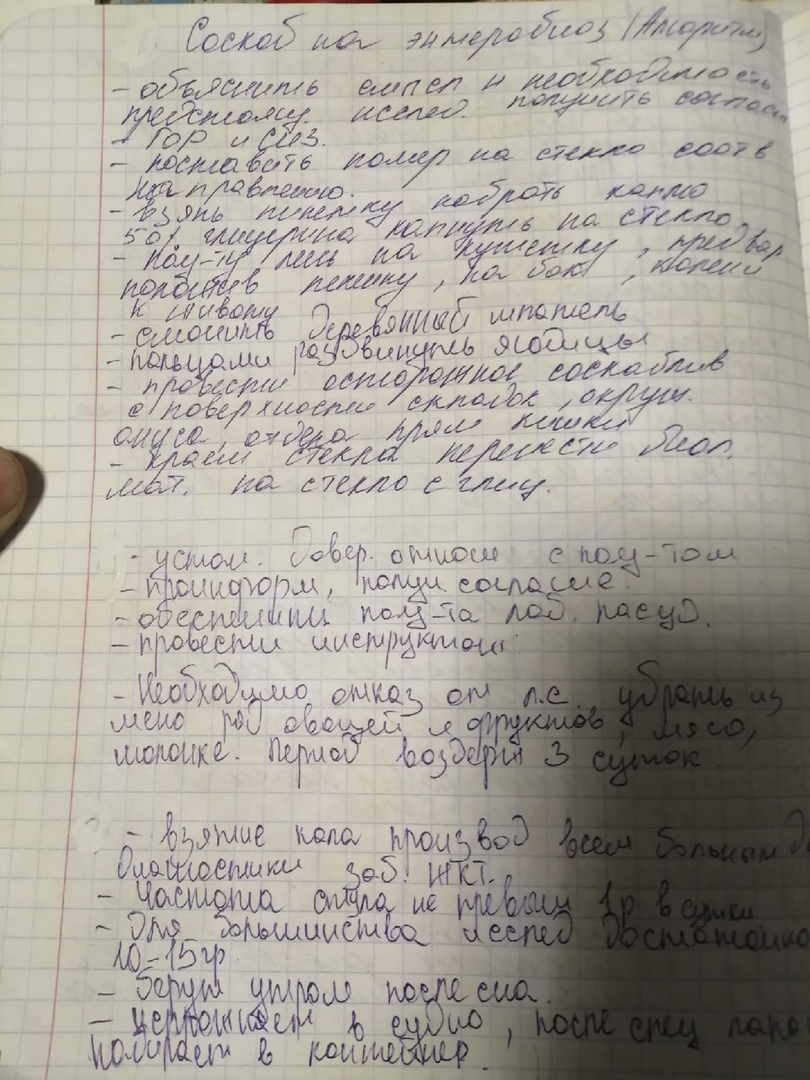 Соскоб на энтеробиоз (Алгоритм)
- объяснить смысл и необходимость
предстоящ. исслед. получить соглас
- ГОР и СИЗ.
- поставить номер на стекло соотв
направлению.
- взять пипетку набрать каплю
50% глицерина капнуть на стекло
- пац-ту лечь на кушетку, предвар
положив пеленку, на бок, колени
к животу
- смочить деревянный шпатель
- пальцами раздвинуть ягодицы
- провести осторожное соскаблив
с поверхностей складок, окруж.
ануса, отдела прям кишки
- краем стекла перенести биол.
мат. на стекло с глиц.
- устан. довер. отнош с пац-том
- проинформ, получ. согласие.
- обеспечить пац-та лаб. посуд.
- провести инструктаж
- Необходимо отказ от л.с. убрать из
меню ряд овощей и фруктов, мясо,
молочке. Период воздерж 3 суток.
- взятие кала производ всем больным д
диагностики заб. ЖКТ.
- Частота стула не превыш 1р в сутки
- Для большинства исслед достаточно
10-15гр.
- берут утром после сна.
- в судно, после спец
набирает в контейнер.